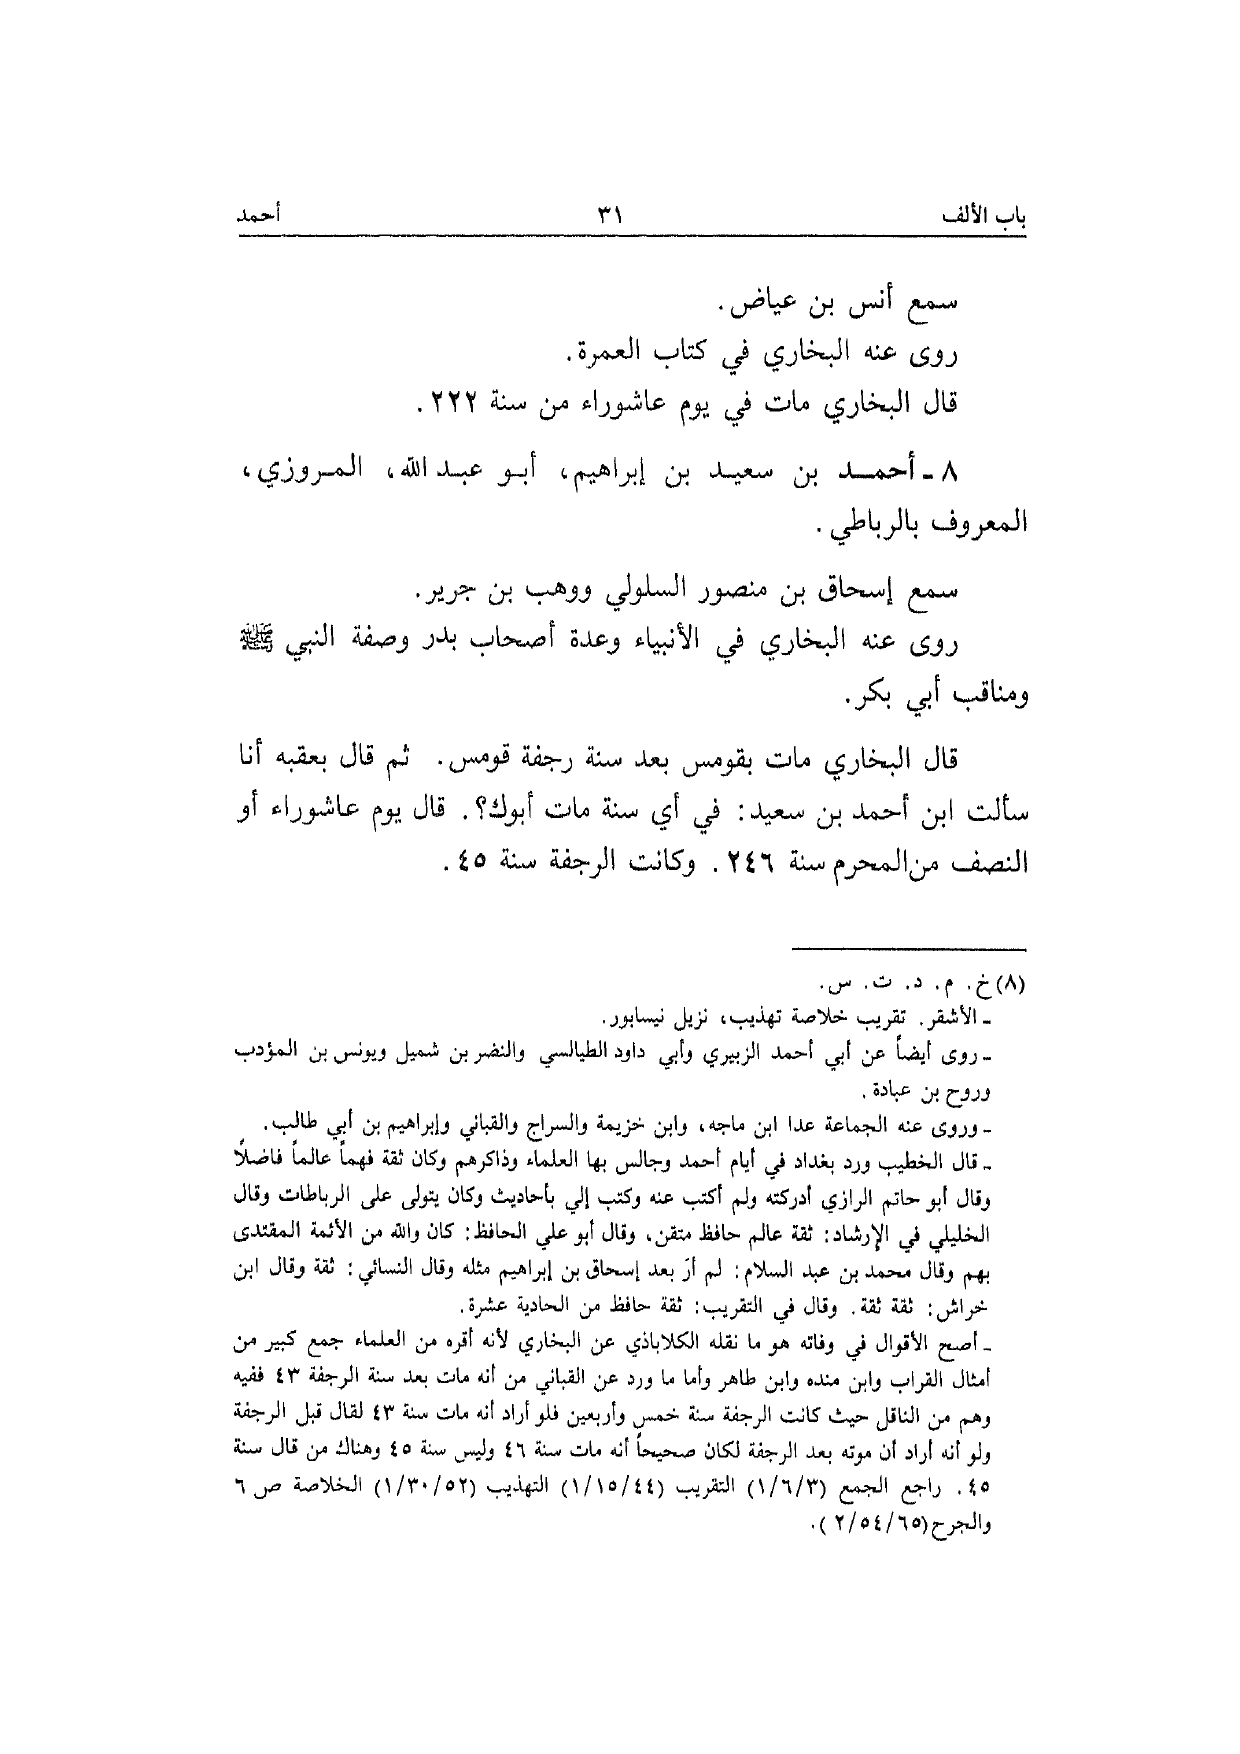 باب الألف ٣١ أحمد
سمع أنس بن عياض.
روى عنه البخاري في كتاب العمرة.
قال البخاري مات في يوم عاشوراء من سنة ٢٢٢.
٨ - أحمد بن سعيد بن إبراهيم، أبو عبد الله، المروزي،
المعروف بالرباطي.
سمع إسحاق بن منصور السلولي ووهب بن جرير.
روى عنه البخاري في الأنبياء وعدة أصحاب بدر وصفة النبي ﷺ
ومناقب أبي بكر.
قال البخاري مات بقومس بعد سنة رجفة قومس. ثم قال بعقبه أنا
سألت ابن أحمد بن سعيد: في أي سنة مات أبوك؟. قال يوم عاشوراء أو
النصف من المحرم سنة ٢٤٦. وكانت الرجفة سنة ٤٥.
(٨) خ. م. د. ت. س.
- الأشقر. تقريب خلاصة تهذيب، نزيل نيسابور.
- روى أيضاً عن أبي أحمد الزبيري وأبي داود الطيالسي والنضر بن شميل ويونس بن المؤدب
وروح بن عبادة.
- وروى عنه الجماعة عدا ابن ماجه، وابن خزيمة والسراج والقباني وإبراهيم بن أبي طالب.
- قال الخطيب ورد بغداد في أيام أحمد وجالس بها العلماء وذاكرهم وكان ثقة فهماً عالماً فاضلاً
وقال أبو حاتم الرازي أدركته ولم أكتب عنه وكتب إلي بأحاديث وكان يتولى على الرباطات وقال
الخليلي في الإرشاد: ثقة عالم حافظ متقن، وقال أبو علي الحافظ: كان والله من الأئمة المقتدى
بهم وقال محمد بن عبد السلام: لم أرَ بعد إسحاق بن إبراهيم مثله وقال النسائي: ثقة وقال ابن
خراش: ثقة ثقة. وقال في التقريب: ثقة حافظ من الحادية عشرة.
- أصح الأقوال في وفاته هو ما نقله الكلاباذي عن البخاري لأنه أقره من العلماء جمع كبير من
أمثال القراب وابن منده وابن طاهر وأما ما ورد عن القباني من أنه مات بعد سنة الرجفة ٤٣ ففيه
وهم من الناقل حيث كانت الرجفة سنة خمس وأربعين فلو أراد أنه مات سنة ٤٣ لقال قبل الرجفة
ولو أنه أراد أن موته بعد الرجفة لكان صحيحاً أنه مات سنة ٤٦ وليس سنة ٤٥ وهناك من قال سنة
٤٥. راجع الجمع (١/٦/٣) التقريب (١/١٥/٤٤) التهذيب (١/٣٠/٥٢) الخلاصة ص ٦
والجرح (٢/٥٤/٦٥).